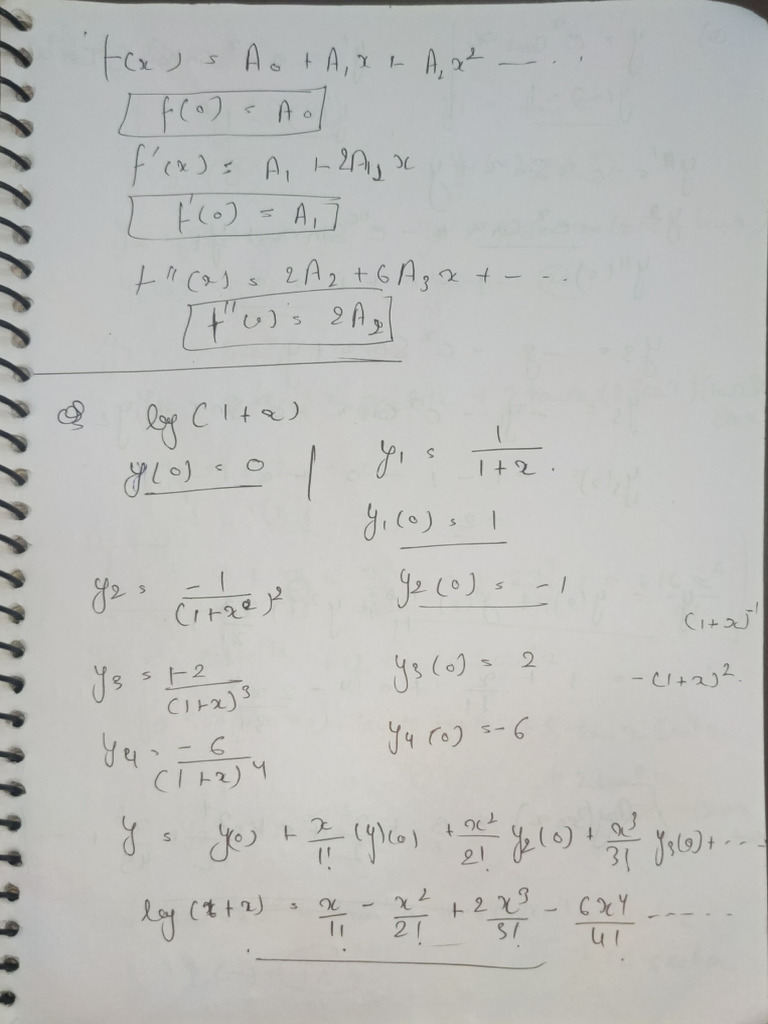 f(x) = A₀ + A₁x + A₂x² — ...
f(0) = A₀
f'(x) = A₁ + 2A₂x
f'(0) = A₁
f''(x) = 2A₂ + 6A₃x + - ...
f''(0) = 2A₂
Q log(1+x)
y(0) = 0 | y₁ = 1/(1+x).
y₁(0) = 1
y₂ = -1/(1+x²)² y₂(0) = -1
(1+x)⁻¹
y₃ = +2/(1+x)³ y₃(0) = 2 -(1+x)².
y₄ = -6/(1+x)⁴ y₄(0) = -6
y = y(0) + x/1! (y)(0) + x²/2! y₂(0) + x³/3! y₃(0) + ...
log(1+x) = x/1! - x²/2! + 2x³/3! - 6x⁴/4! ......